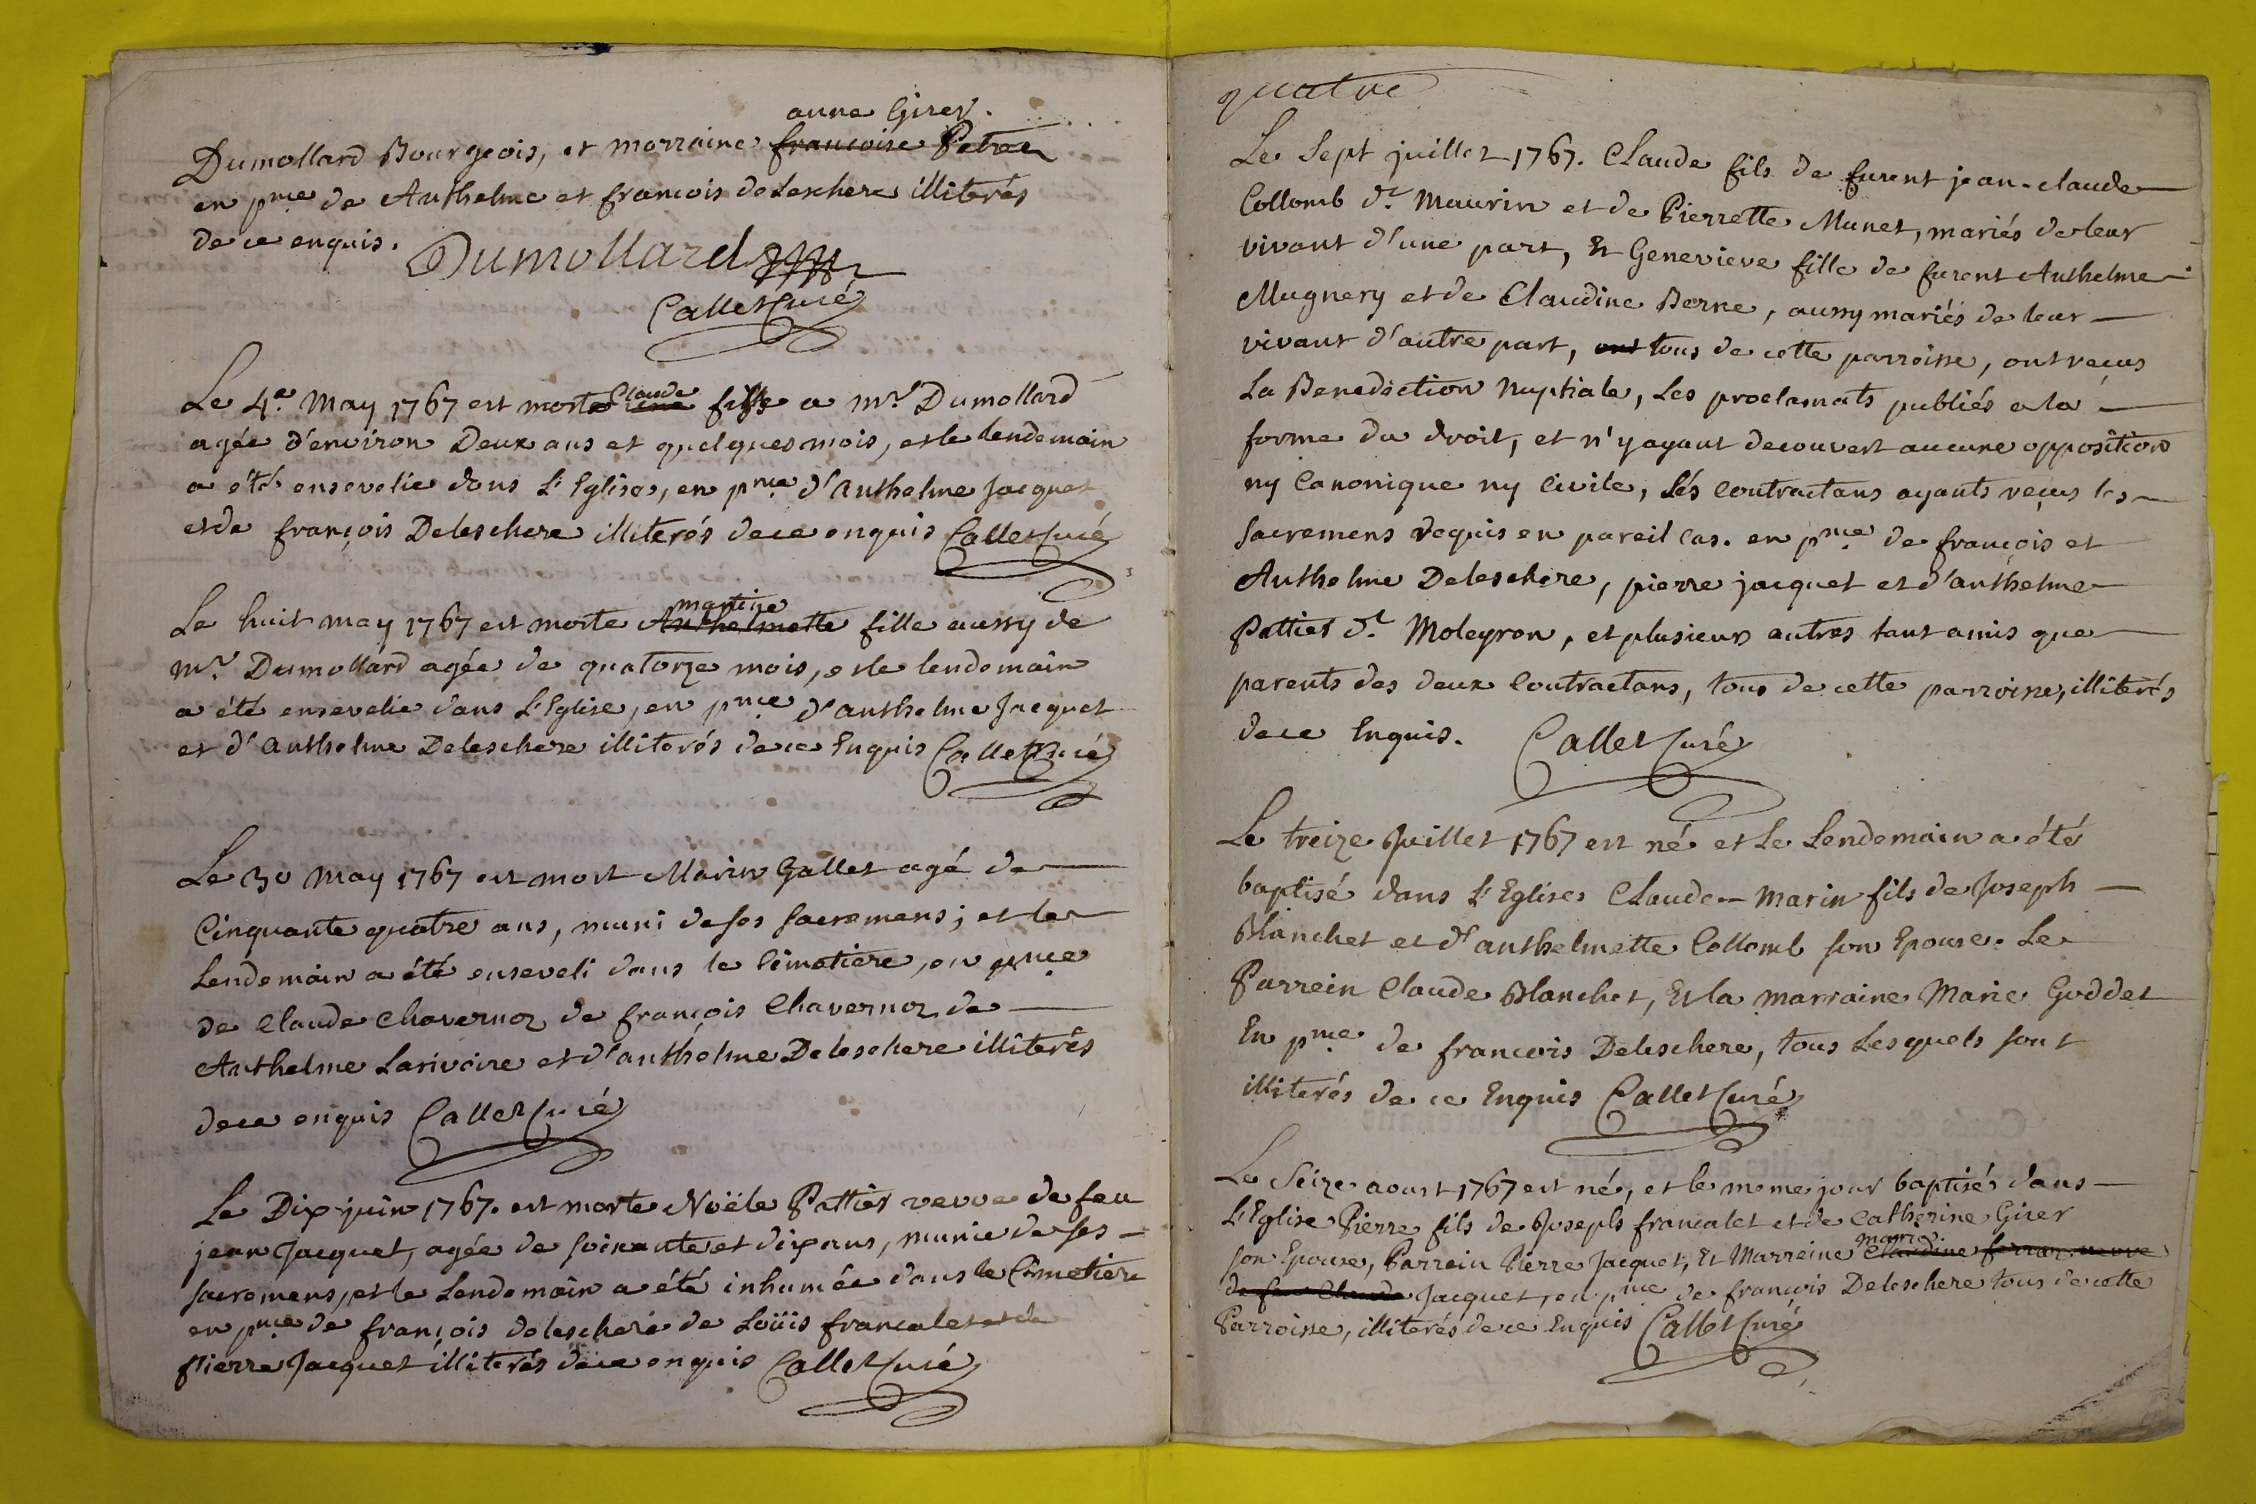 anne Girer.
Dumollard Bourgeois, et marraine francoise
en pnce de Anthelme et francois deleschere illiterés
de ce enquis.
Dumollard
Callet Curé
Le 4e May 1767 est morte Claude fille a mr Dumollard
agée d'environ Deux ans et quelques mois, et le lendemain
a été ensevelie dans L'Eglise, en pnce d'anthelme Jacquet
et de françois Deleschere illiterés de ce enquis Callet Curé
martine
Le huit may 1767 est morte Anthelmette fille aussy de
mr Dumollard agée de quatorze mois, et le lendemain
a été ensevelie dans L'Eglise, en pnce d'anthelme Jacquet
et d'anthelme Deleschere illiterés de ce Enquis Callet Curé
Le 30 May 1767 est mort Marin Gallet agé de
Cinquante quatre ans, muni de ses sacremens; et le
Lendemain a été enseveli dans le Cimetiere, en pnce
de Claude Chavernoz de françois Chavernoz de
Anthelme Larivoire et d'anthelme Deleschere illiterés
de ce enquis Callet Curé
Le Dix juin 1767. est morte Noële Pattier veuve de feu
jean Jacquet, agée de soixante et dix ans, munie de ses
sacremens, et le Lendemain a été inhumée dans le Cimetiere
en pnce de françois deleschere de Loüis francalet et de
Pierre Jacquet illiterés de ce enquis Callet Curé
quatre
Le Sept juillet 1767. Claude fils de furent jean-claude
Collomb dt Maurin et de Pierrette Munet, mariés de leur
vivant d'une part, Et Genevieve fille de furent Anthelme
Mugnery et de Claudine Berne, aussy mariés de leur
vivant d'autre part, ont tous de cette parroisse, ont reçus
La Benediction Nuptiale, Les proclamats publiés a la
forme du droit, et n'y ayant decouvert aucune opposition
ny Canonique ny Civile, Lés contractans ayants reçus les
sacremens requis en pareil cas. en pnce de françois et
Anthelme Deleschere, pierre jacquet et d'anthelme
Pattier dt Moleyron, et plusieurs autres tant amis que
parents des deux contractans, tous de cette parroisse, illiterés
de ce Enquis. Callet Curé
Le treize Juillet 1767 est né et Le Lendemain a été
baptisé dans L'Eglise Claude-Marin fils de Joseph
Blanchet et d'anthelmette Collomb son Epouse. Le
Parrein Claude Blanchet, Et la marraine Marie Goddet
En pnce de francois Deleschere, tous Lesquels sont
illiterés de ce Enquis Callet Curé
Le Seize aoust 1767 est né, et le meme jour baptisé dans
L'Eglise Pierre fils de Joseph francalet et de Catherine Girer
marie
son Epouse, Parrein Pierre Jacquet, Et Marreine Claudine ferrar veuve
de feu Claude Jacquet, en pnce de françois Deleschere tous de cette
Parroisse, illiterés de ce Enquis Callet Curé